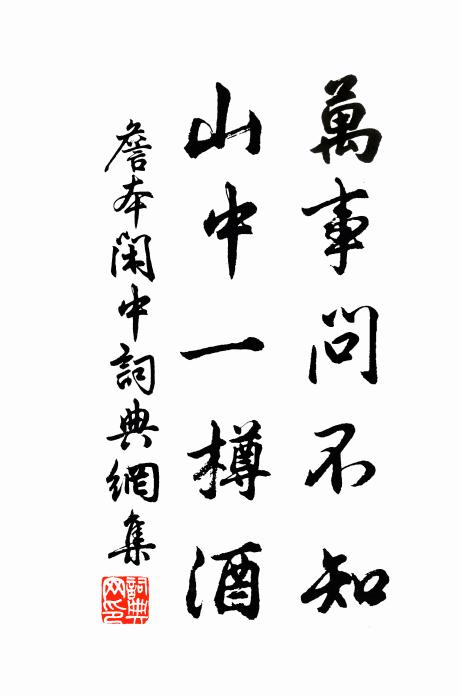 萬事問不知
山中一樽酒
詹本閑中詞典網集
詞典
网印